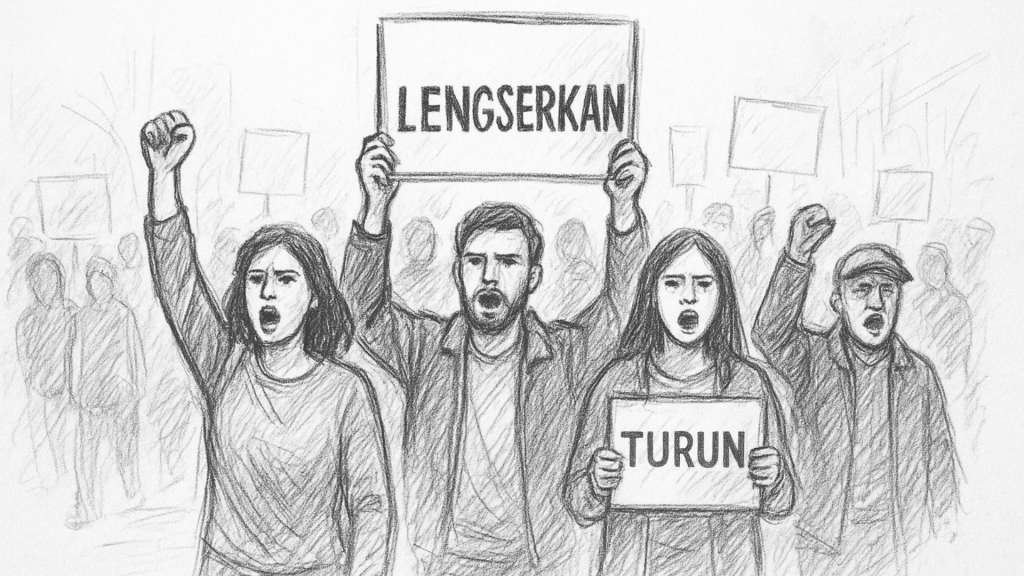 LENGSERKAN
TURUN